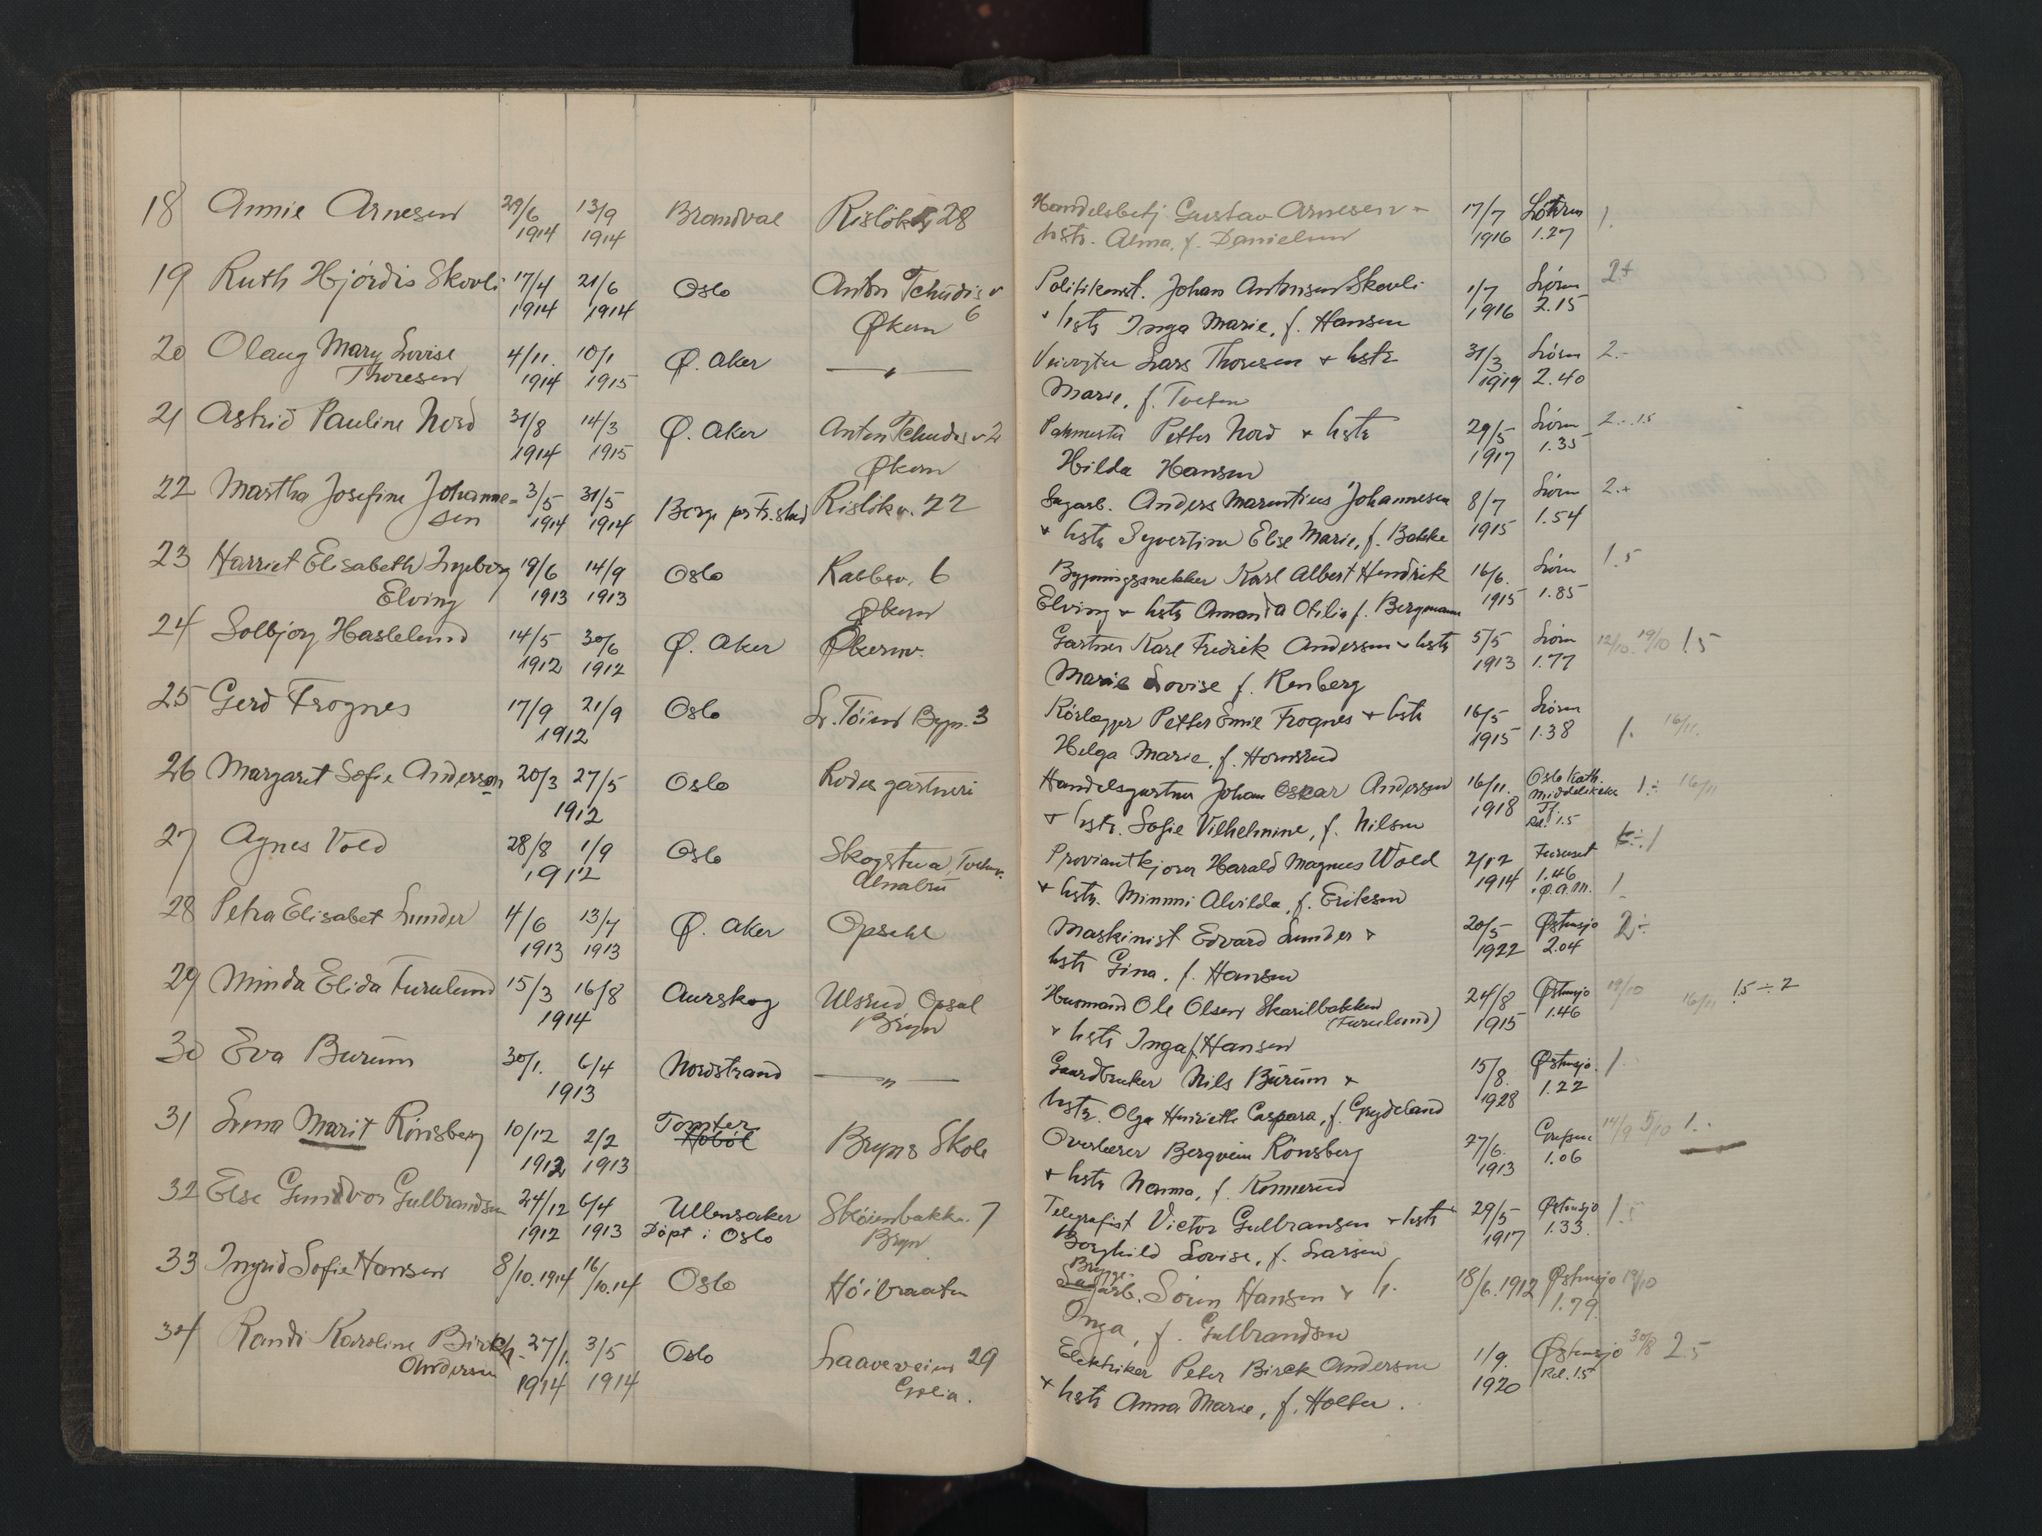 18 Annie Arnesen 29/6 1914 13/9 1914 Brandval 28
Handelsbetj Gustav Arnesen +
hstr. Alma, f. Danielsen 17/7 1916 1.27 1.
19 Ruth Hjördis Skovli 17/4 1914 21/6 1914 Oslo Anton Tchudis v 6
Økern
Politikonst. Johan Antonsen Skovli
+ hstr Inga Marie, f. Hansen 1/7 1916 Lörn 2.15 2+
20 Olaug Mary Lovise
Thoresen 4/11. 1914 10/1 1915 Ø. Aker — „ —
Lars Thoresen + hstr
Marie, f. 31/3 1919 Lörn 2.40 2.-
21 Astrid Pauline Nord 31/8 1914 14/3 1915 Ø. Aker Anton Tchudis v 2
Økern
Petter Nord + hstr
Hilda Hansen 29/5 1917 Lörn 1.35 2 1.5
22 Martha Josefine Johanne-
sen 3/5 1914 31/5 1914 Borge pr Fr.stad Rislökv. 22
Sagarb. Anders Marentius Johannesen
+ hstr Syvertine Elise Marie, f. Bakke 8/7 1915 Lörn 1.54 2.+
23 Harriet Elisabeth Ingeborg
Elving 19/6 1913 14/9 1913 Oslo 6
Økern
Bygningssnekker Karl Albert Hendrik
Elving + hstr Amanda Otilia f. Bergmann 16/6. 1915 Lörn 1.85 1.5
24 Solbjorg Haslelund 14/5 1912 30/6 1912 Ø. Aker Økernv.
Gartner Karl Fredrik Andersen + hstr
Marie Lovise f. Renberg 5/5 1913 Lörn 1.77 12/10. 19/10 1.5
25 Gerd Frognes 17/9 21/9 1912 Oslo L. Töien Bygn. 3
Rörlegger Petter Emil Frognes + hstr
Helga Marie, f. Hornsrud 16/5 1915 Lörn 1.38 1. 16/11.
26 Margaret Sofie Anderson 20/3 27/5 1912 Oslo Rodes gartneri
Handelsgartner Johan Oskar Andersen
+ hstr. Sofie Vilhelmine, f. Nilsen 16/11. 1918 Oslo Kath.
Middelskole
Tf.
Rel. 1.5 1÷ 16/11
27 Agnes Vold 28/8 1/9 1912 Oslo Skogstua,
Alnabru
Proviantkjorer Harald Magnus Wold
+ hstr. Minmi Alvilda, f. Eriksen 2/12 1914 Furuset
1.46
i Ø.A.M. 1
28 Petra Elisabet Lunder 4/6 1913 13/7 1913 Ø. Aker Opsahl
Maskinist Edvard Lunder +
hstr Gina. f. Hansen 20/5 1922 Østensjo
2.04 2÷
29 Minda Elida Furulund 15/3 16/8 1914 Aurskog Ulsrud Opsal
Bryn
Husmand Ole Olsen Skarilbakken
(Furulund)
+ hstr Inga f. Hansen 24/8 1915 Østensjo
1.46 19/10 16/11 1.5 ÷ 2
30 Eva Burum 30/1. 6/4 1913 Nordstrand — „ —
Gaardbruker Nils Burum +
hstr. Olga Henriette Caspara, f. Grydeland 15/8. 1928 Østensjo.
1.22 1
31 Marit Rönsberg 10/12 1912 2/2 1913 Tomter
Hobøl Bryns Skole
Overlærer Bergvein Rönsberg
+ hstr Nanna, f. Konnerud 27/6. 1913 Grefsen
1.06 14/9 5/10 1.
32 Else Gunvor Gulbrandsen 24/12 1912 6/4 1913 Ullensaker
Döpt i Oslo Skøienbakkn. 7
Bryn
Telegrafist Victor Gulbransen + hstr
Borghild Lovise, f. Larsen 29/5 1917 Østensjo
1.33. 1.5
33 Ingrid Sofie Hansen 8/10. 1914 16/10.14 Oslo Höibraaten
Brygge-
Sagarb. Sören Hansen + h.
Inga, f. Gulbrandsen 18/6.1912 Østensjo
1.79. 19/10
34 Randi Karoline Birch-
Andersen 27/1. 1914 3/5 1914 Oslo 29
Godlia.
Elektriker Peter Birck Andersen
+ hstr Anna Marie, f. Holter. 1/9. 1920 Østensjo
Rel. 1.5 30/8 2.5